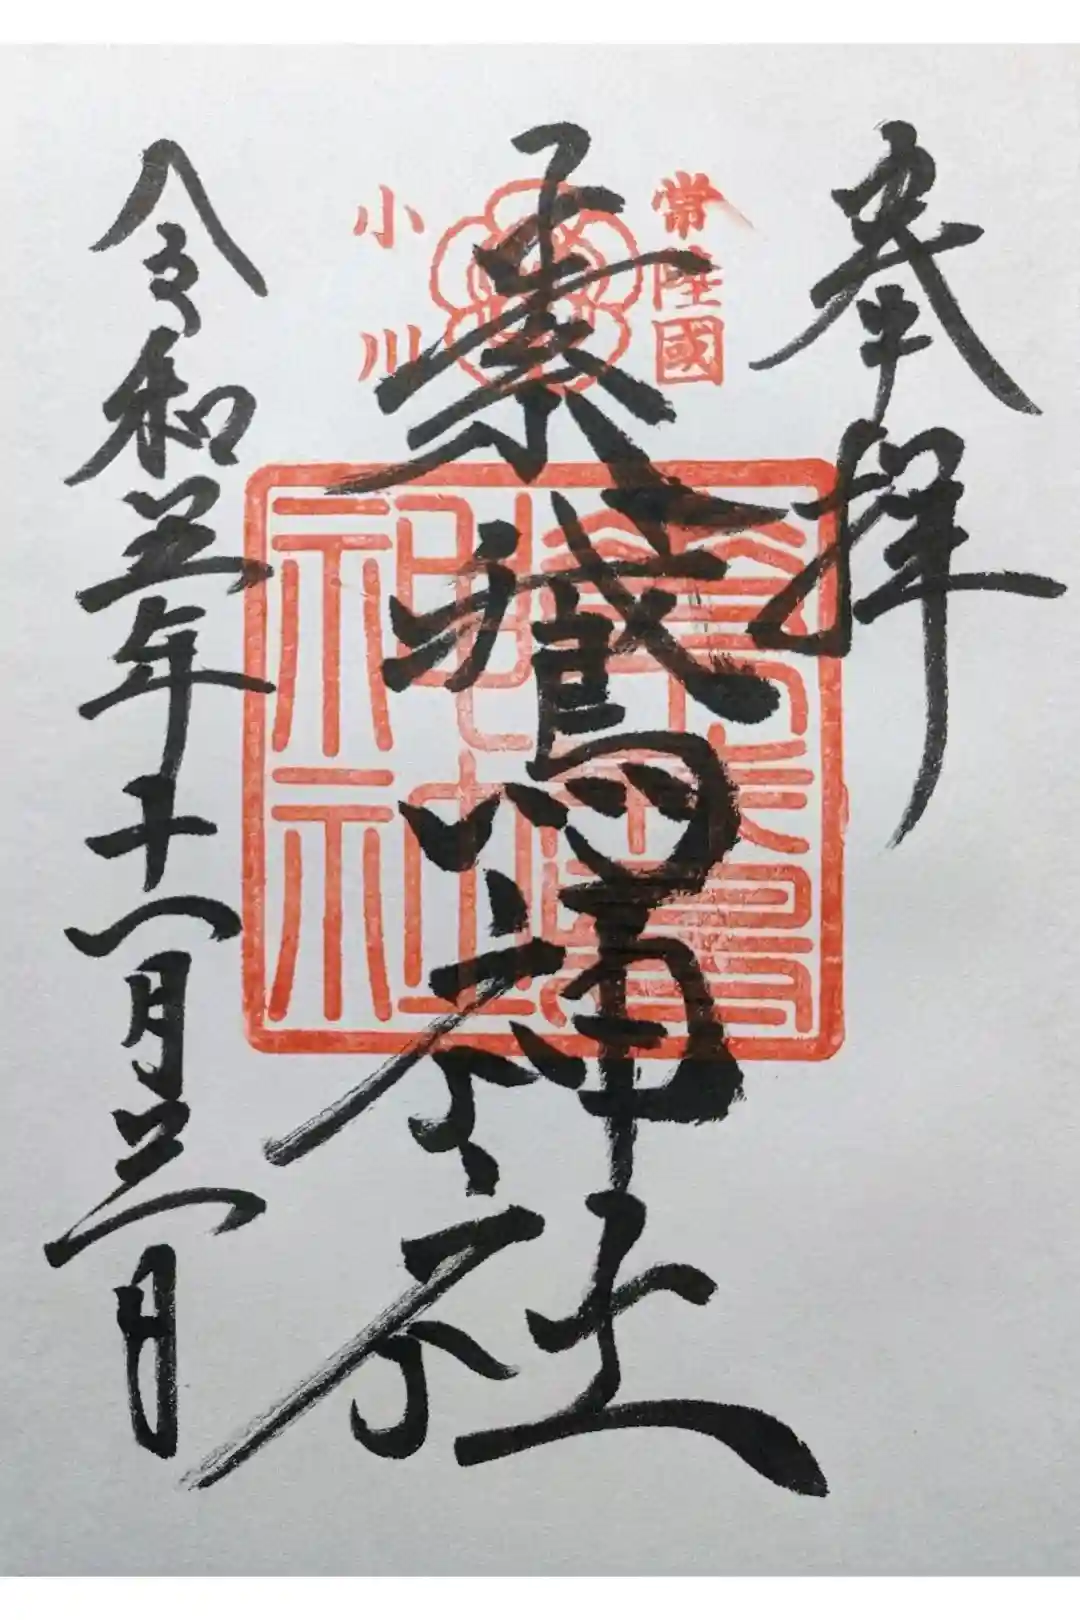 奉拝
常陸國
素鵞神社
小川
素鵞神社
令和五年十一月三日